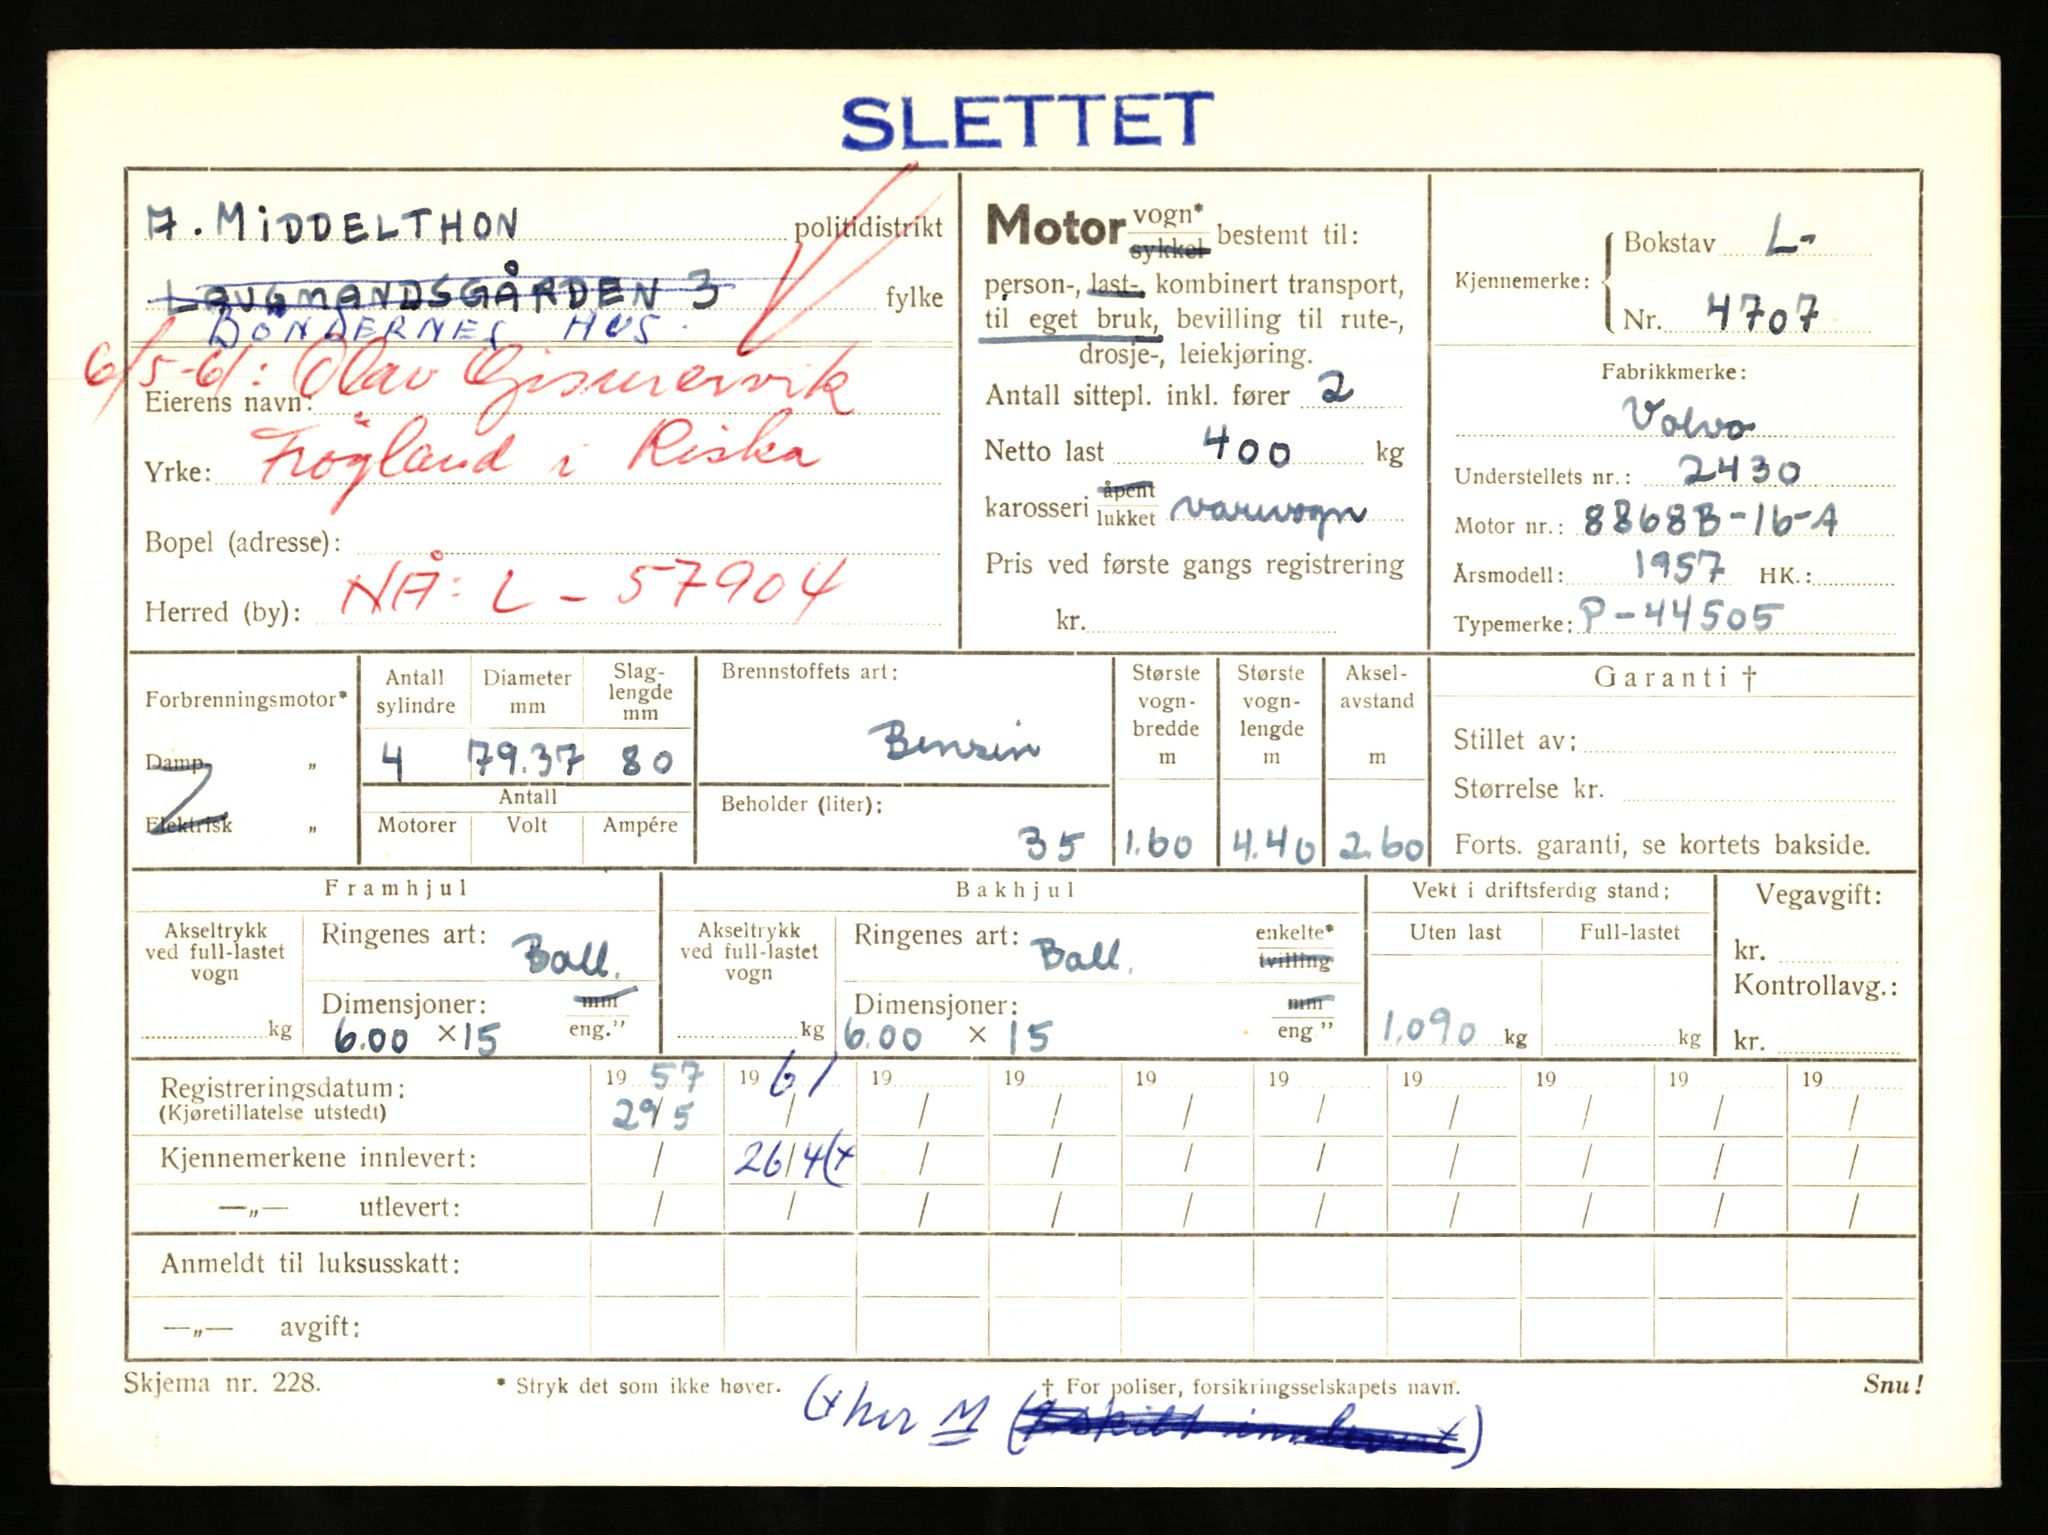 SLETTET
A. MiDDELTHON politidistrikt
LAUGMANDSGÅRDEN 3 fylke
BÖNDERNES HUS.
6/5-61: Olav
Eierens navn:
Yrke: Frögland i Riska
Bopel (adresse):
NÅ: L - 57904
Herred (by):
Motor vogn* sykkel bestemt til:
person-, last-, kombinert transport,
til eget bruk, bevilling til rute-,
drosje-, leiekjøring.
Antall sittepl. inkl. fører 2
Netto last 400 kg
karosseri åpent lukket varevogn
Pris ved første gangs registrering
kr.
Kjennemerke: Bokstav L-
Nr. 4707
Fabrikkmerke:
Volvo
Understellets nr.: 2430
Motor nr.: 8868B-16-A
Årsmodell: 1957 HK.:
Typemerke: P-44505
Forbrenningsmotor*
Damp „
Elektrisk „
Antall sylindre
Diameter mm
Slag-lengde mm
4 79.37 80
Antall
Motorer Volt Ampére
Brennstoffets art:
Bensin
Beholder (liter):
35
Største vogn-bredde m
1.60
Største vogn-lengde m
4.40
Aksel-avstand m
2.60
Garanti †
Stillet av:
Størrelse kr.
Forts. garanti, se kortets bakside.
Framhjul
Akseltrykk ved full-lastet vogn
kg
Ringenes art: Ball.
Dimensjoner: mm
6.00 × 15 eng."
Bakhjul
Akseltrykk ved full-lastet vogn
kg
Ringenes art: Ball. enkelte* tvilling
Dimensjoner: mm
6.00 × 15 eng."
Vekt i driftsferdig stand:
Uten last Full-lastet
1.090 kg kg
Vegavgift:
kr.
Kontrollavg.:
kr.
Registreringsdatum: 19 57 19 61 19 19 19 19 19 19 19 19
(Kjøretillatelse utstedt) 29/5 / / / / / / / / /
Kjennemerkene innlevert: / 26/4 (x / / / / / / / /
—„— utlevert: / / / / / / / / / /
Anmeldt til luksusskatt:
—„— avgift:
Skjema nr. 228. * Stryk det som ikke høver. † For poliser, forsikringsselskapets navn. Snu!
(x her M